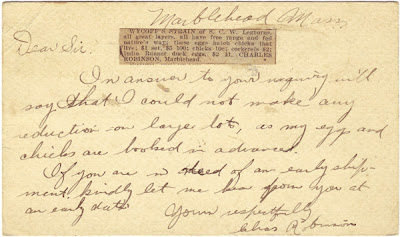 Marblehead Mass,
Dear Sir.
WYCOFF'S STRAIN of S. C. W. Leghorns,
all great layers, all have free range and fed
nature's way; these eggs hatch chicks that
live; $1 set, $5 100; chicks 10c; cockerels $2;
India Runner duck eggs, $2 11. CHARLES
ROBINSON, Marblehead.
In answer to your inquiry will
say that I could not make any
reduction on large lot, as my egg and
chicks are booked in advanced.
If you are in need of an early ship-
ment, kindly let me hear from you at
an early date
Yours respectfully
Chas Robinson